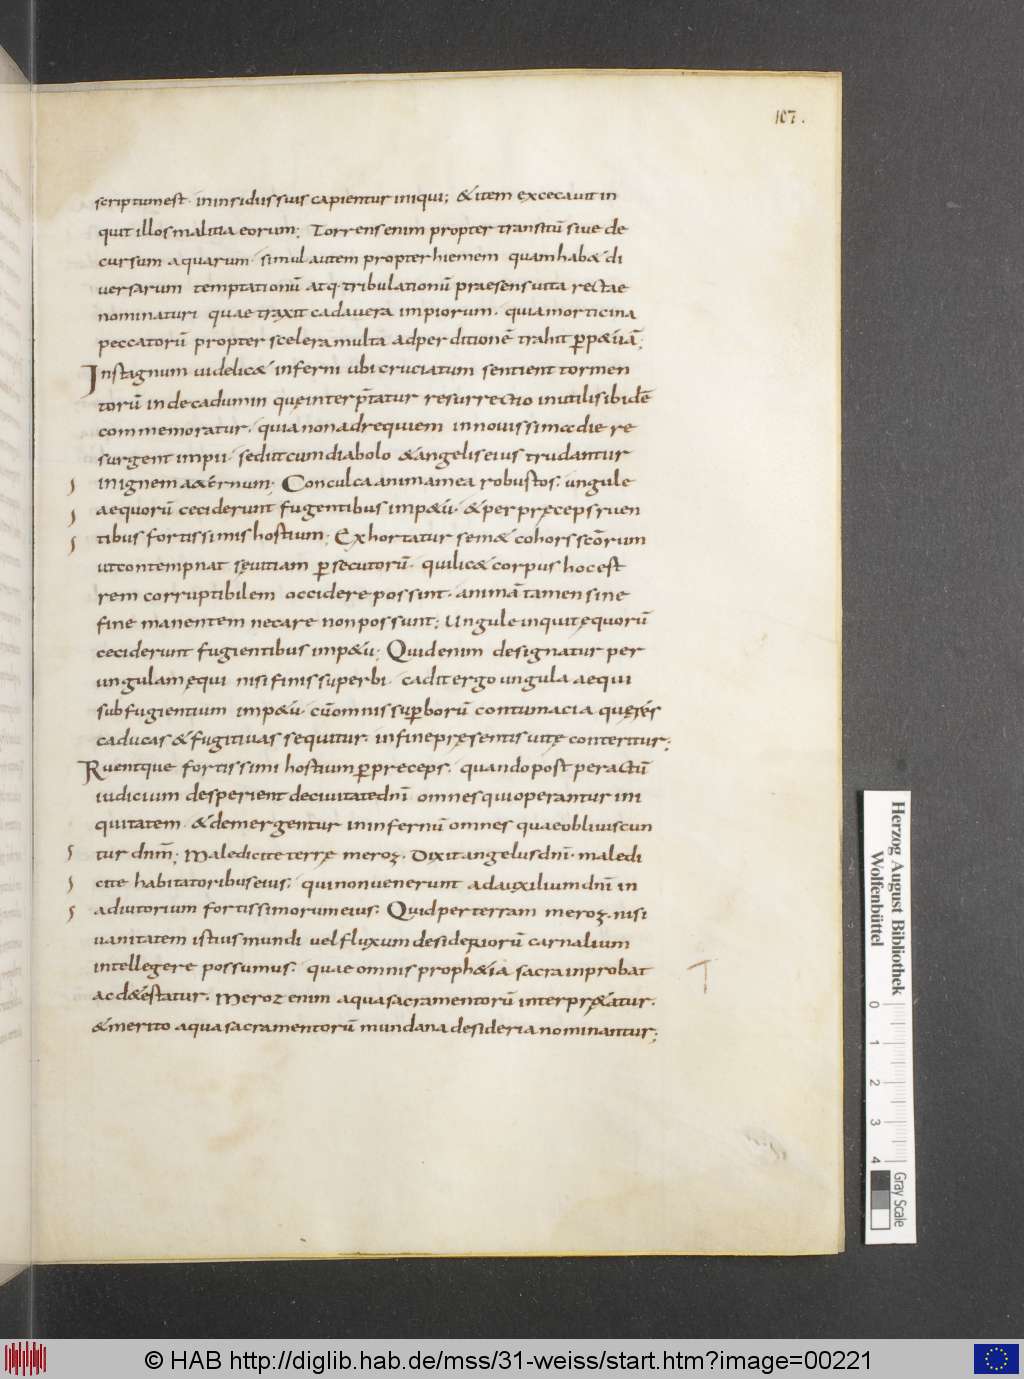 107.
scriptum est · in insidiis suis capientur iniqui; & item excecavit in
quit illos malitia eorum; Torrens enim propter transitū sive de
cursum aquarum · simul autem propter hiemem quam hab& di
versarum temptationū atq· tribulationū praesens vita rectae
nominatur quae traxit cadavera impiorum · quia morticina
peccatorū propter scelera multa ad perditionē trahit ꝑp&uā;
In stagnum videlic& inferni ubi cruciatum sentient tormen
torū inde cadumin que interp̄tatur resurrectio inutilis ibidē
commemoratur · quia non ad requiem in novissimo die re
surgent impii · sed ut cum diabolo & angelis eius trudantur
in ignem a&ernum; Conculca anima mea robustos · ungule
aequorū ceciderunt fugentibus imp&u · & per pręceps ruen
tibus fortissimis hostium; Exhortatur sem& cohors scōrum
ut contempnat sęvitiam ꝑsecutorū · qui lic& corpus hoc est
rem corruptibilem occidere possint · animā tamen sine
fine manentem necare non possunt; Ungule inquit ęquorū
ceciderunt fugientibus imp&u; Quid enim designatur per
ungulam ęqui nisi finis superbi · cadit ergo ungula aequi
sub fugientium imp&u · cū omnis suꝑborū contumacia quę res
caducas & fugitivas sequitur · in fine pręsentis vitę conteritur;
Ruentque fortissimi hostium ꝑ preceps · quando post peractū
iudicium desperient de civitate dnī omnes qui operantur ini
quitatem · & demergentur in infernū omnes quae obliviscun
tur dnm̄; Maledicite terrę meroz · Dixit angelus dnī · maledi
cite habitatoribus eius; qui non venerunt ad auxilium dnī in
adiutorium fortissimorum eius; Quid per terram meroz · nisi
vanitatem istius mundi vel fluxum desideriorū carnalium
intellegere possumus; quae omnis proph&ia sacra inprobat
ac d&estatur · Meroz enim aqua sacramentorū interpr&atur ·
& merito aqua sacramentorū mundana desideria nominantur;
Herzog August Bibliothek
Wolfenbüttel
0 1 2 3 4
Gray Scale
© HAB http://diglib.hab.de/mss/31-weiss/start.htm?image=00221